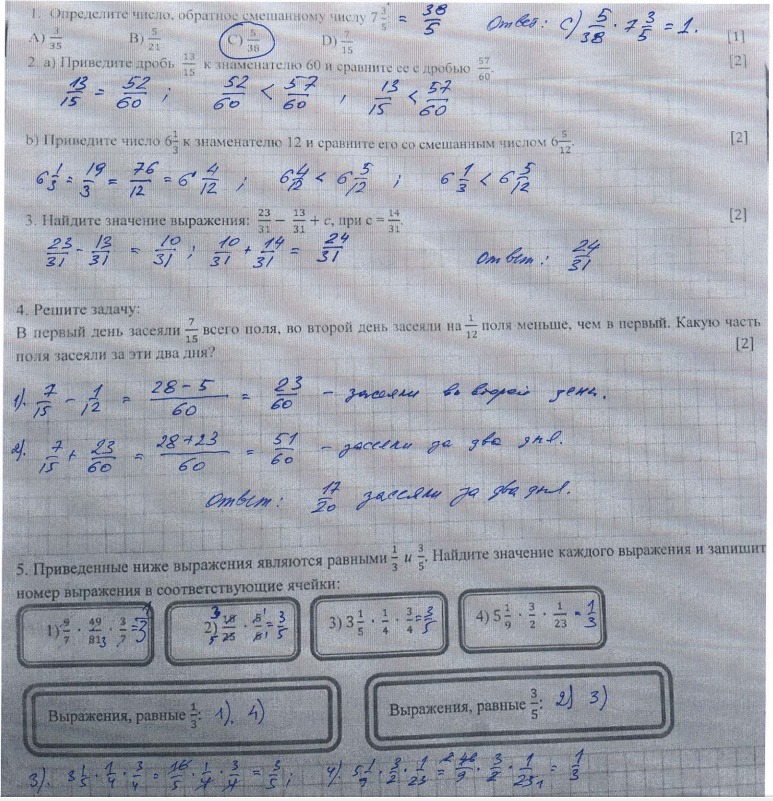 1. Определите число, обратное смешанному числу 7 3/5 = 38/5 Ответ: С) 5/38 · 7 3/5 = 1. [1]
A) 3/35 B) 5/21 C) 5/38 D) 7/15
2. а) Приведите дробь 13/15 к знаменателю 60 и сравните ее с дробью 57/60. [2]
13/15 = 52/60 ; 52/60 < 57/60 , 13/15 < 57/60
b) Приведите число 6 1/3 к знаменателю 12 и сравните его со смешанным числом 6 5/12. [2]
6 1/3 = 19/3 = 76/12 = 6 4/12 ; 6 4/12 < 6 5/12 ; 6 1/3 < 6 5/12
3. Найдите значение выражения: 23/31 − 13/31 + c, при c = 14/31. [2]
23/31 - 13/31 = 10/31 ; 10/31 + 14/31 = 24/31 ответ: 24/31
4. Решите задачу:
В первый день засеяли 7/15 всего поля, во второй день засеяли на 1/12 поля меньше, чем в первый. Какую часть
поля засеяли за эти два дня? [2]
1). 7/15 - 1/12 = 28-5/60 = 23/60 - засеяли во второй день.
2). 7/15 + 23/60 = 28+23/60 = 51/60 - засеяли за два дня.
ответ: 17/20 засеяли за два дня.
5. Приведенные ниже выражения являются равными 1/3 и 3/5. Найдите значение каждого выражения и запишит
номер выражения в соответствующие ячейки:
1) 9/7 · 49/81 · 3/7 = 1/3 2) 18/25 · 5/6 = 3/5 3) 3 1/5 · 1/4 · 3/4 = 3/5 4) 5 1/9 · 3/2 · 1/23 = 1/3
Выражения, равные 1/3: 1), 4) Выражения, равные 3/5: 2) 3)
3). 3 1/5 · 1/4 · 3/4 = 16/5 · 1/4 · 3/4 = 3/5 ; 4). 5 1/9 · 3/2 · 1/23 = 46/9 · 3/2 · 1/23 = 1/3